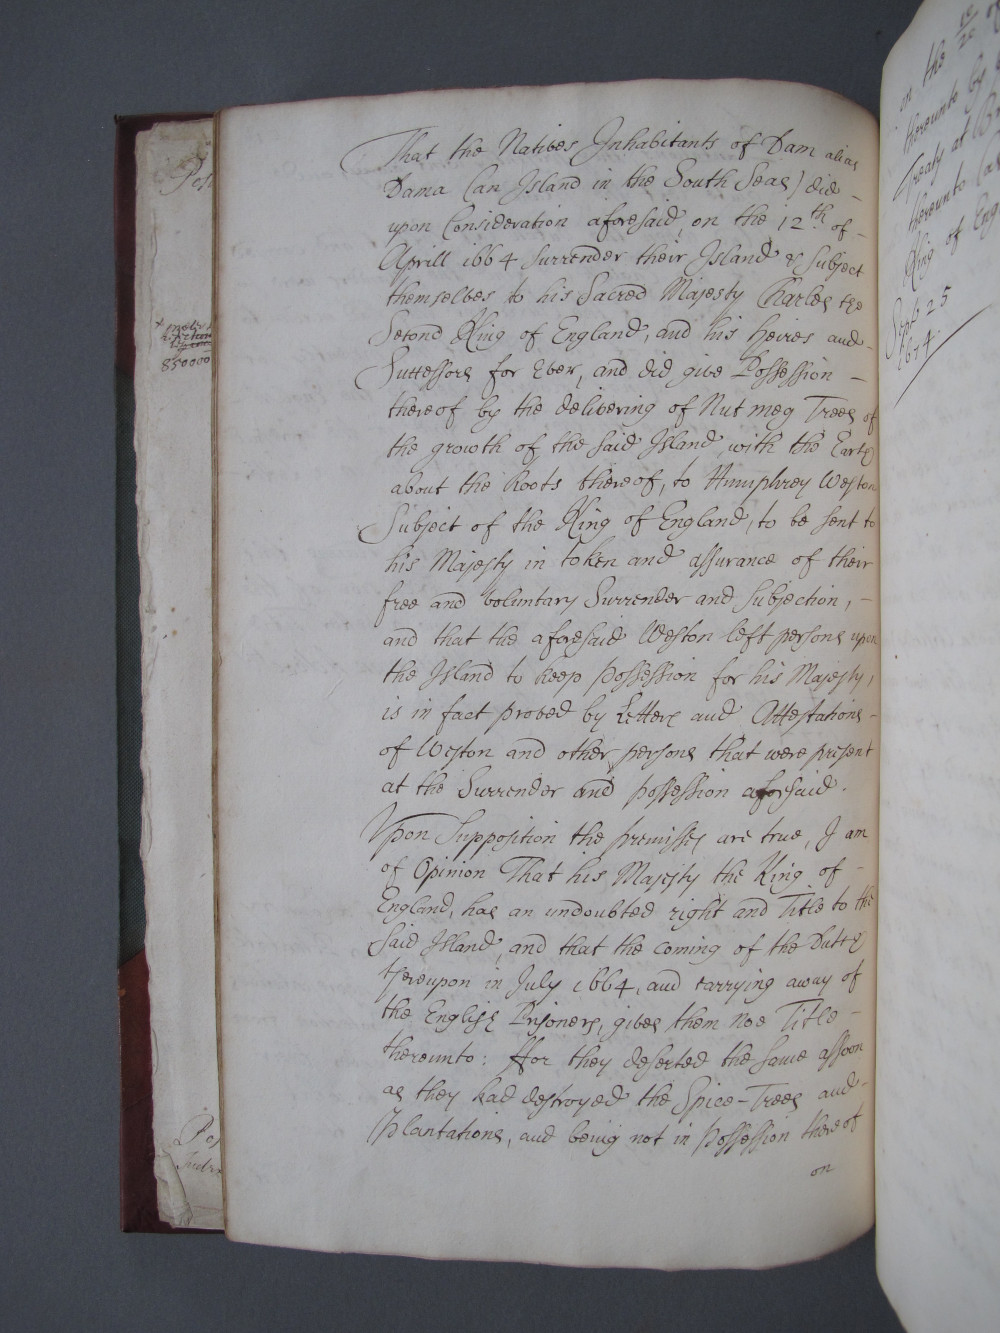 That the Natives Inhabitants of Dam alias
Dama (an Island in the South Seas) did
upon Consideration aforesaid, on the 12th of
Aprill 1664 Surrender their Island & Subject
themselves to his Sacred Majesty Charles the
Second King of England, and his Heires and
Successors for Ever, and did give Possession
thereof by the delivering of Nutmeg Trees of
the growth of the said Island with the Earth
about the Roots thereof, to Humphrey Weston
Subject of the King of England, to be sent to
his Majesty in token and assurance of their
free and voluntary Surrender and Subjection,
and that the aforesaid Weston left persons upon
the Island to keep Possession for his Majesty,
is in fact proved by Letters and Attestations
of Weston and other persons that were present
at the Surrender and possession aforesaid.
Upon Supposition the premisses are true, I am
of Opinion That his Majesty the King of
England, has an undoubted right and Title to the
said Island, and that the coming of the Dutch
thereupon in July 1664, and carrying away of
the English Prisoners, gives them noe Title
thereunto: ffor they deserted the same assoon
as they had destroyed the Spice-Trees and
Plantations, and being not in Possession thereof
on
850000
in the
thereunto by
Treaty at
thereunto
King of Eng
Sept 25
1674